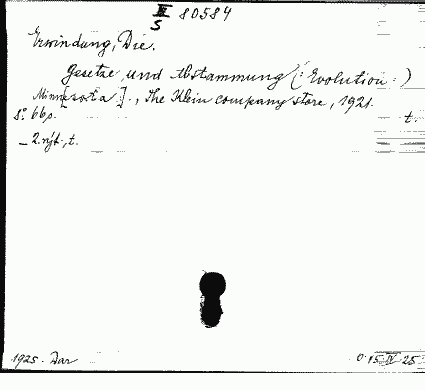 III 80584
S
Erwindung, Die.
Gesetze und Abstammung (: Evolution :)
Minn[esota]., The Klein company store, 1921.
8° 66 p. t.
– 2. nyt., t.
1925. Dar 0 15 IV 25